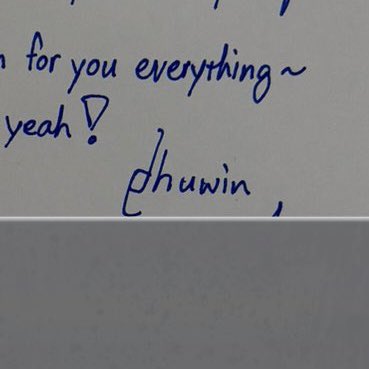 for you everything~
yeah!
Phuwin